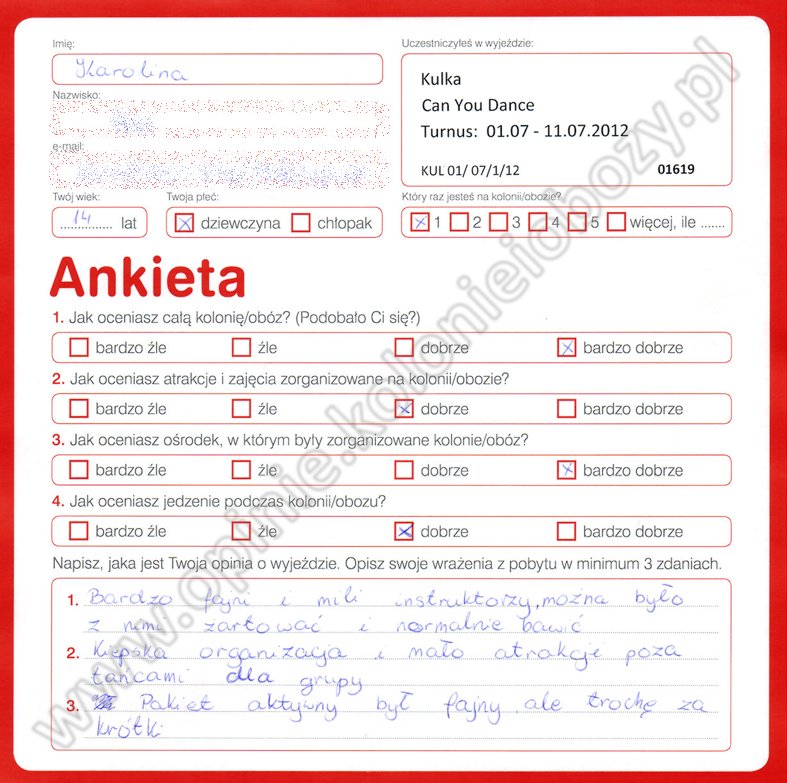 Imię:
Karolina
Uczestniczyłeś w wyjeździe:
Kulka
Can You Dance
Turnus: 01.07 - 11.07.2012
KUL 01/ 07/1/12 01619
Nazwisko:
e-mail:
Twój wiek:
14 lat
Twoja płeć:
dziewczyna chłopak
Który raz jesteś na kolonii/obozie?
1 2 3 4 5 więcej, ile .......
Ankieta
1. Jak oceniasz całą kolonię/obóz? (Podobało Ci się?)
bardzo źle źle dobrze bardzo dobrze
2. Jak oceniasz atrakcje i zajęcia zorganizowane na kolonii/obozie?
bardzo źle źle dobrze bardzo dobrze
3. Jak oceniasz ośrodek, w którym były zorganizowane kolonie/obóz?
bardzo źle źle dobrze bardzo dobrze
4. Jak oceniasz jedzenie podczas kolonii/obozu?
bardzo źle źle dobrze bardzo dobrze
Napisz, jaka jest Twoja opinia o wyjeździe. Opisz swoje wrażenia z pobytu w minimum 3 zdaniach.
1. Bardzo fajni i mili instruktorzy, można było
z nimi żartować i normalnie bawić
2. Kiepska organizacja i mało atrakcje poza
tańcami dla grupy
3. Pakiet aktywny był fajny ale trochę za
krótki
www.opinie.kolonieiobozy.pl